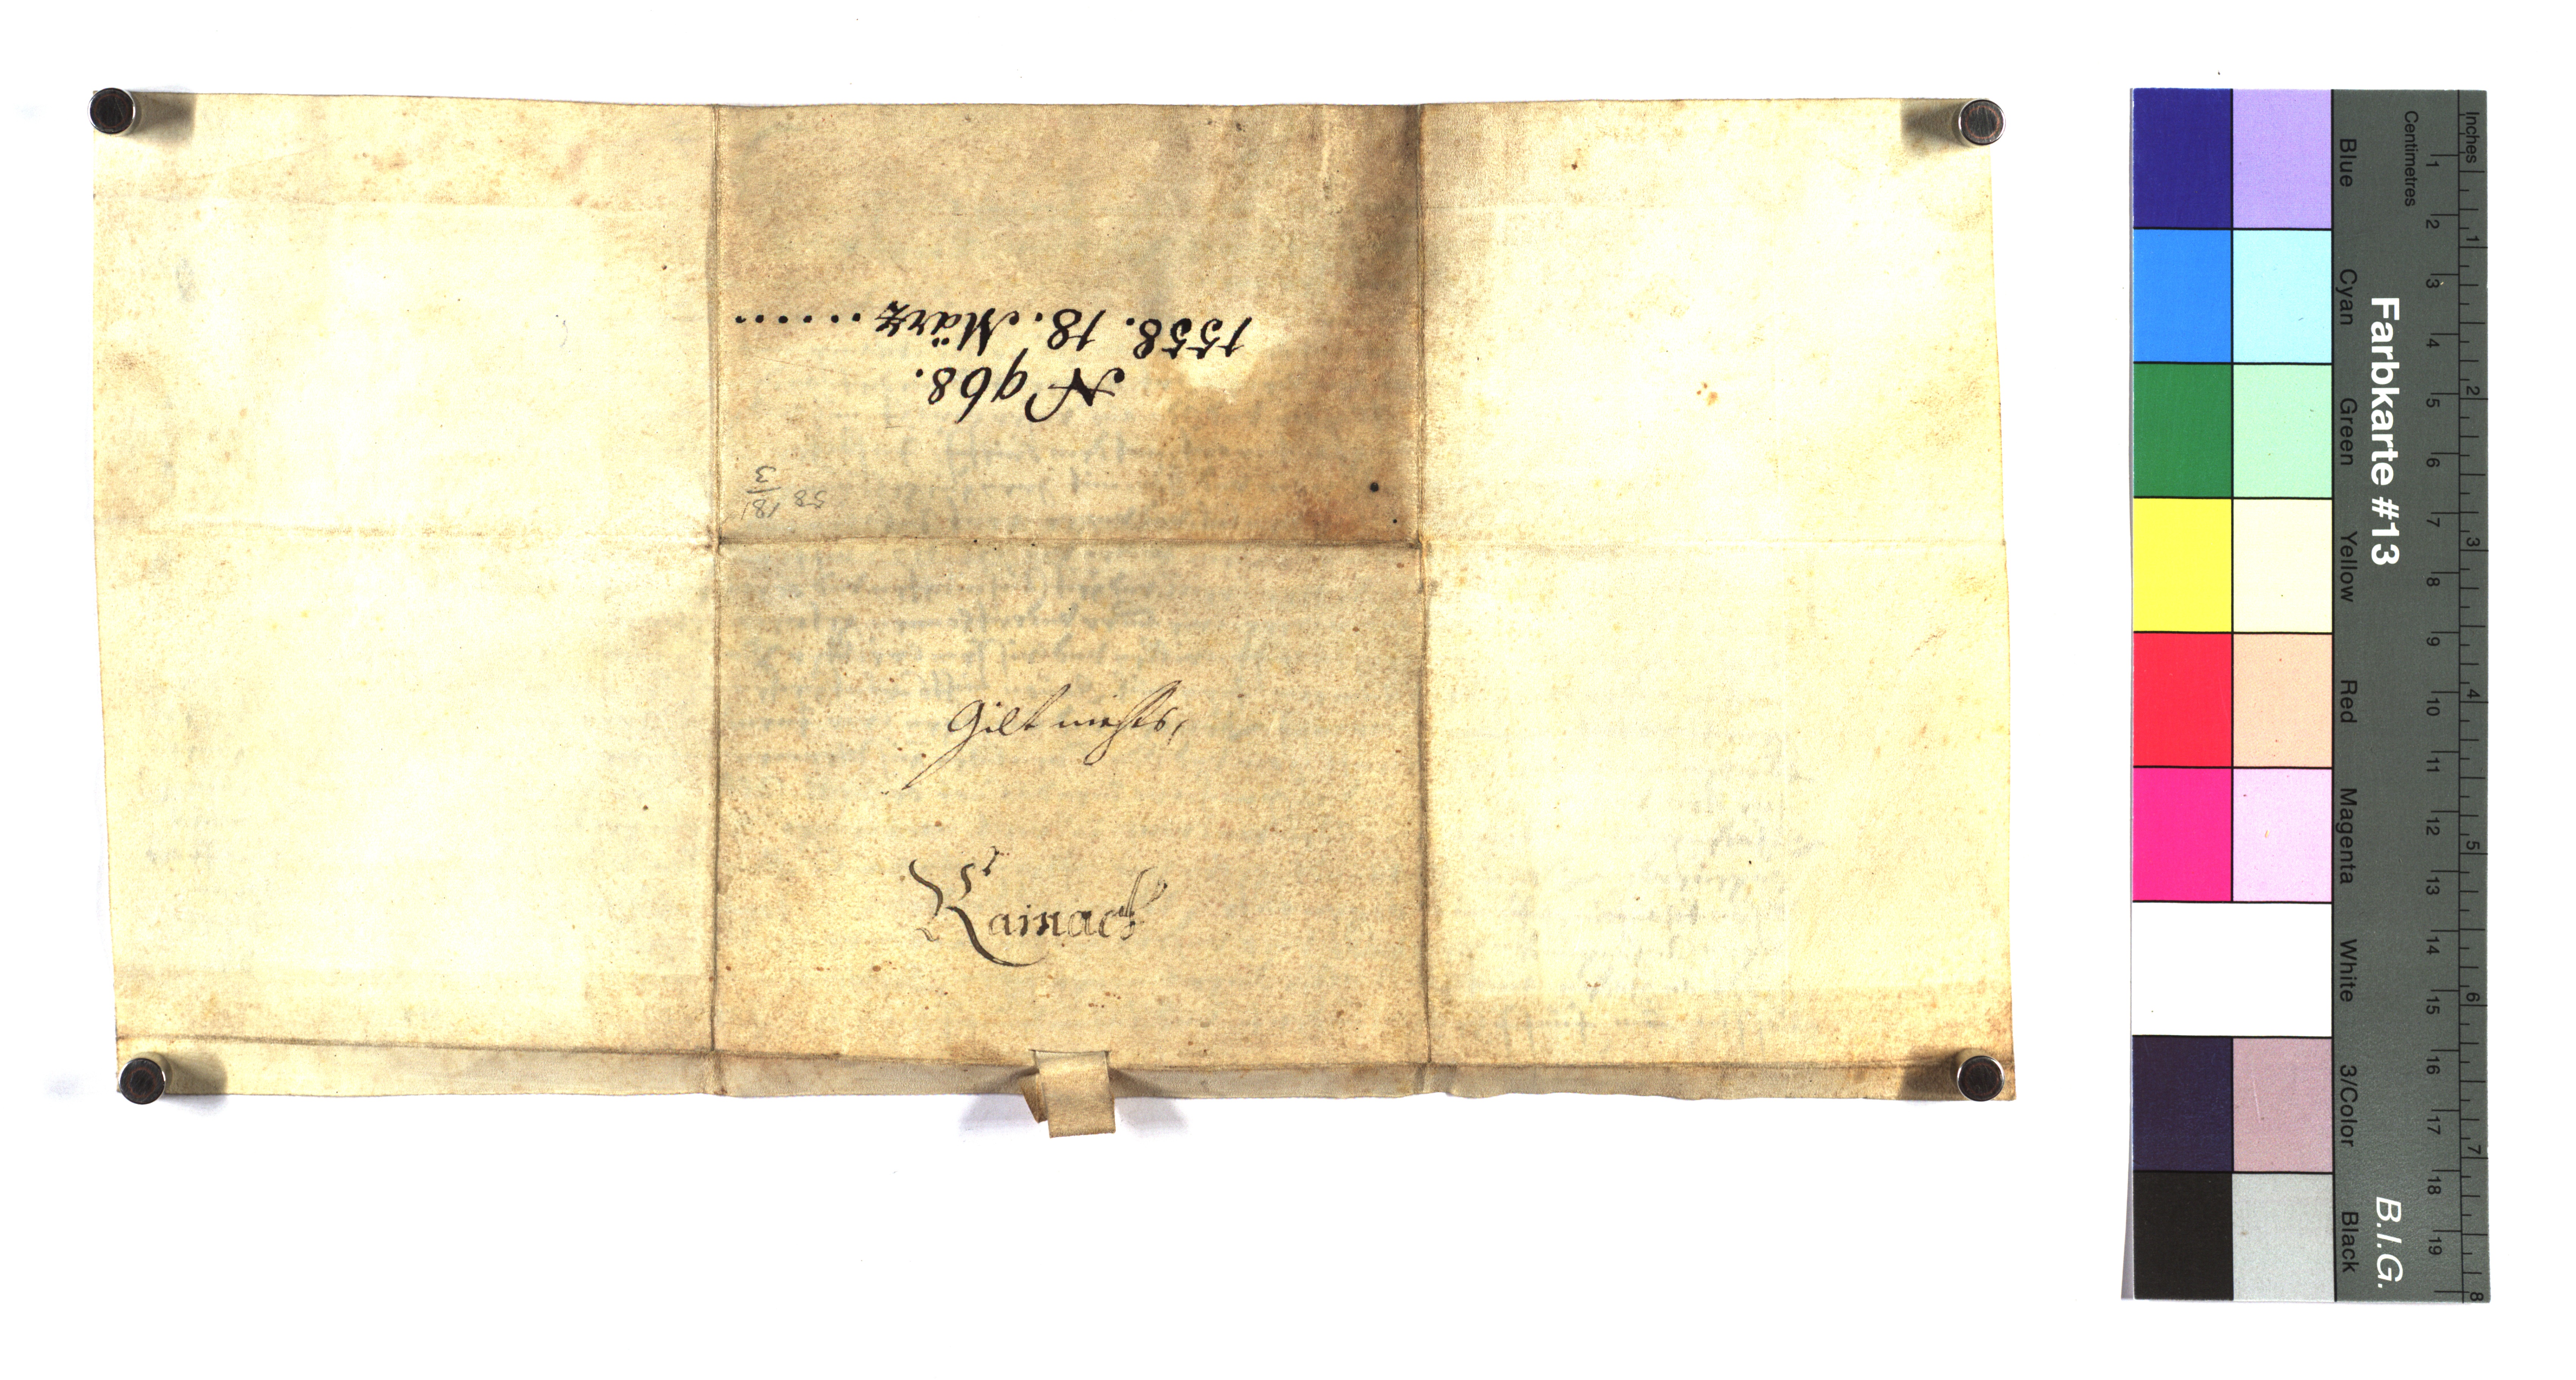 N 968.
1558. 18. März.......
58 18/3
Gilt nichts,
Rainach
Farbkarte #13
B.I.G.
Inches
1 2 3 4 5 6 7 8
Centimetres
1 2 3 4 5 6 7 8 9 10 11 12 13 14 15 16 17 18 19
Blue
Cyan
Green
Yellow
Red
Magenta
White
3/Color
Black